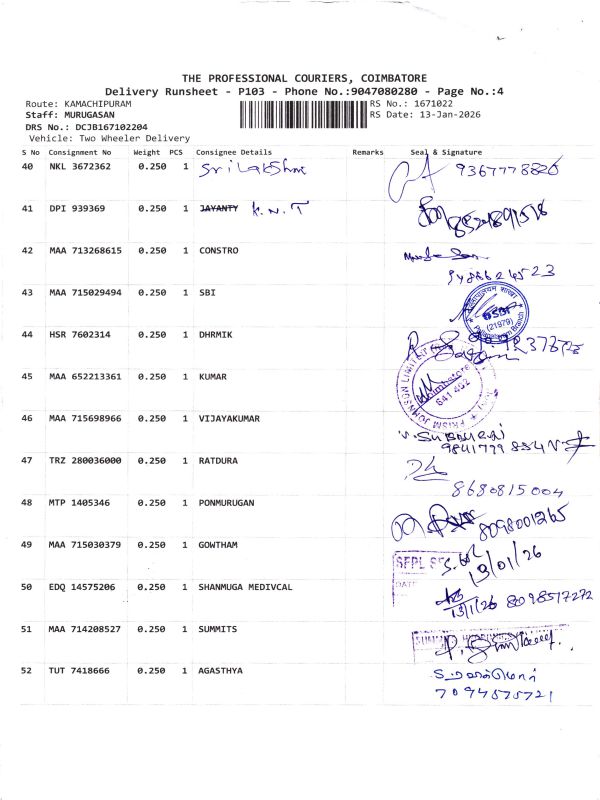 THE PROFESSIONAL COURIERS, COIMBATORE
Delivery Runsheet - P103 - Phone No.:9047080280 - Page No.:4
Route: KAMACHIPURAM
RS No.: 1671022
Staff: MURUGASAN
RS Date: 13-Jan-2026
DRS No.: DCJB167102204
Vehicle: Two Wheeler Delivery
S No Consignment No Weight PCS Consignee Details Remarks Seal & Signature
40 NKL 3672362 0.250 1 Sri Lakshmi 9367778820
41 DPI 939369 0.250 1 JAYANTY K.N.T
42 MAA 713268615 0.250 1 CONSTRO
43 MAA 715029494 0.250 1 SBI
SBI
(21979)
44 HSR 7602314 0.250 1 DHRMIK
45 MAA 652213361 0.250 1 KUMAR
PRISM JOHNSON LIMITED
Coimbatore
641 402
46 MAA 715698966 0.250 1 VIJAYAKUMAR
9841779 884
47 TRZ 280036000 0.250 1 RATDURA
8680815004
48 MTP 1405346 0.250 1 PONMURUGAN
8098001265
49 MAA 715030379 0.250 1 GOWTHAM
SFPL
13/01/26
50 EDQ 14575206 0.250 1 SHANMUGA MEDIVCAL
DATE
13/1/26 8098517272
51 MAA 714208527 0.250 1 SUMMITS
52 TUT 7418666 0.250 1 AGASTHYA
7094575721